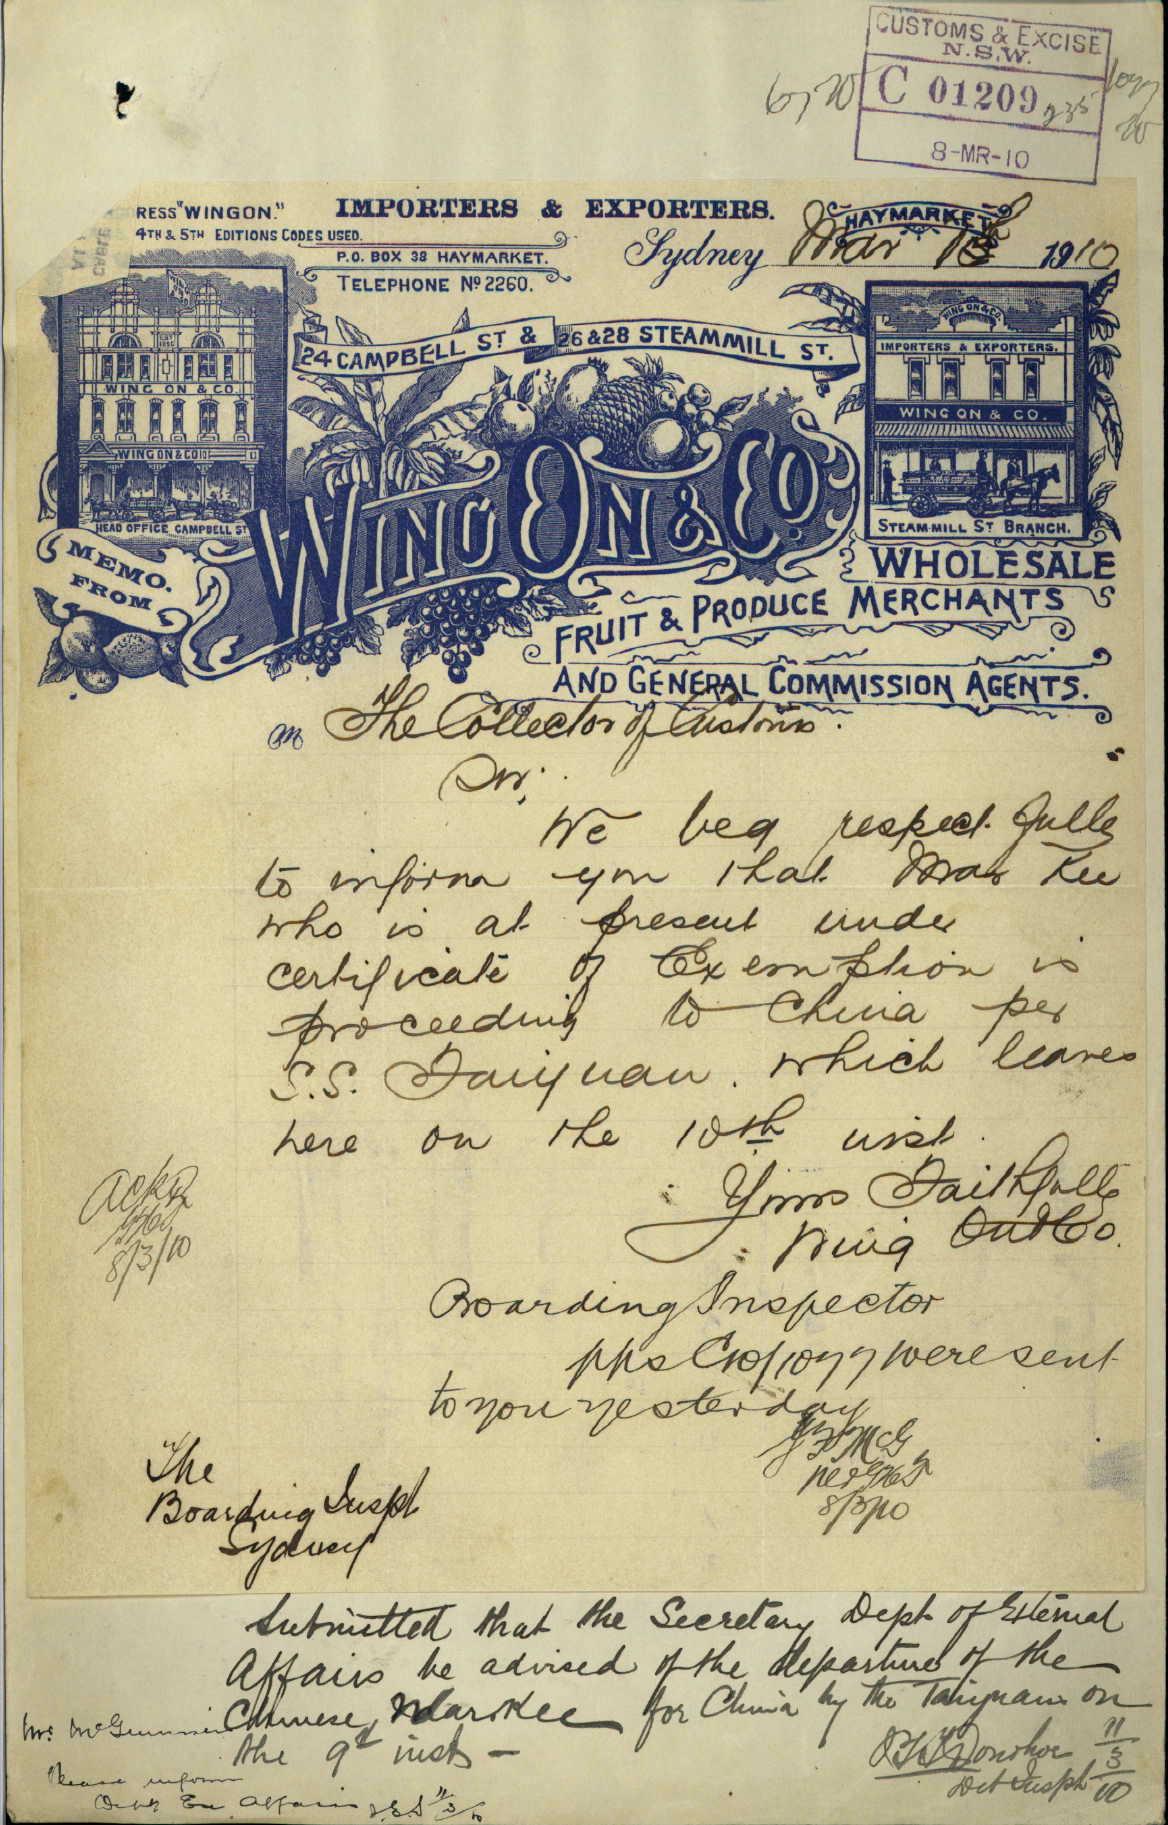 CUSTOMS & EXCISE
N.S.W.
C 01209
8-MR-10
RESS "WINGON."
4TH & 5TH EDITIONS CODES USED.
CABLE
IMPORTERS & EXPORTERS.
P.O. BOX 38 HAYMARKET.
TELEPHONE Nº 2260.
HAYMARKET
Sydney Mar 1910
24 CAMPBELL ST & 26 & 28 STEAMMILL ST.
WING ON & CO.
WING ON & CO LTD
HEAD OFFICE CAMPBELL ST
WING ON & CO.
IMPORTERS & EXPORTERS.
WING ON & CO.
STEAM-MILL ST BRANCH.
MEMO. FROM
WING ON & CO.
WHOLESALE
FRUIT & PRODUCE MERCHANTS
AND GENERAL COMMISSION AGENTS.
The Collector of Customs.
Sir,
We beg respectfully
to inform you that Mar Kee
who is at present under
certificate of Exemption is
proceeding to China per
S.S. Taiyuan. which leaves
here on the 10th inst.
Yours Faithfully
Wing On & Co.
Ackd
8/3/10
Boarding Inspector
pps C10/1077 were sent
to you yesterday
McG
per
8/3/10
The
Boarding Inspt
Sydney
Submitted that the Secretary Dept of External
Affairs be advised of the departure of the
Chinese, Mar Kee for China by the Taiyuan on
the 9th inst —
Donohoe 11/3/10
Det Inspt
Mr.
Please inform
Dept Ex. Affairs 11/3/10